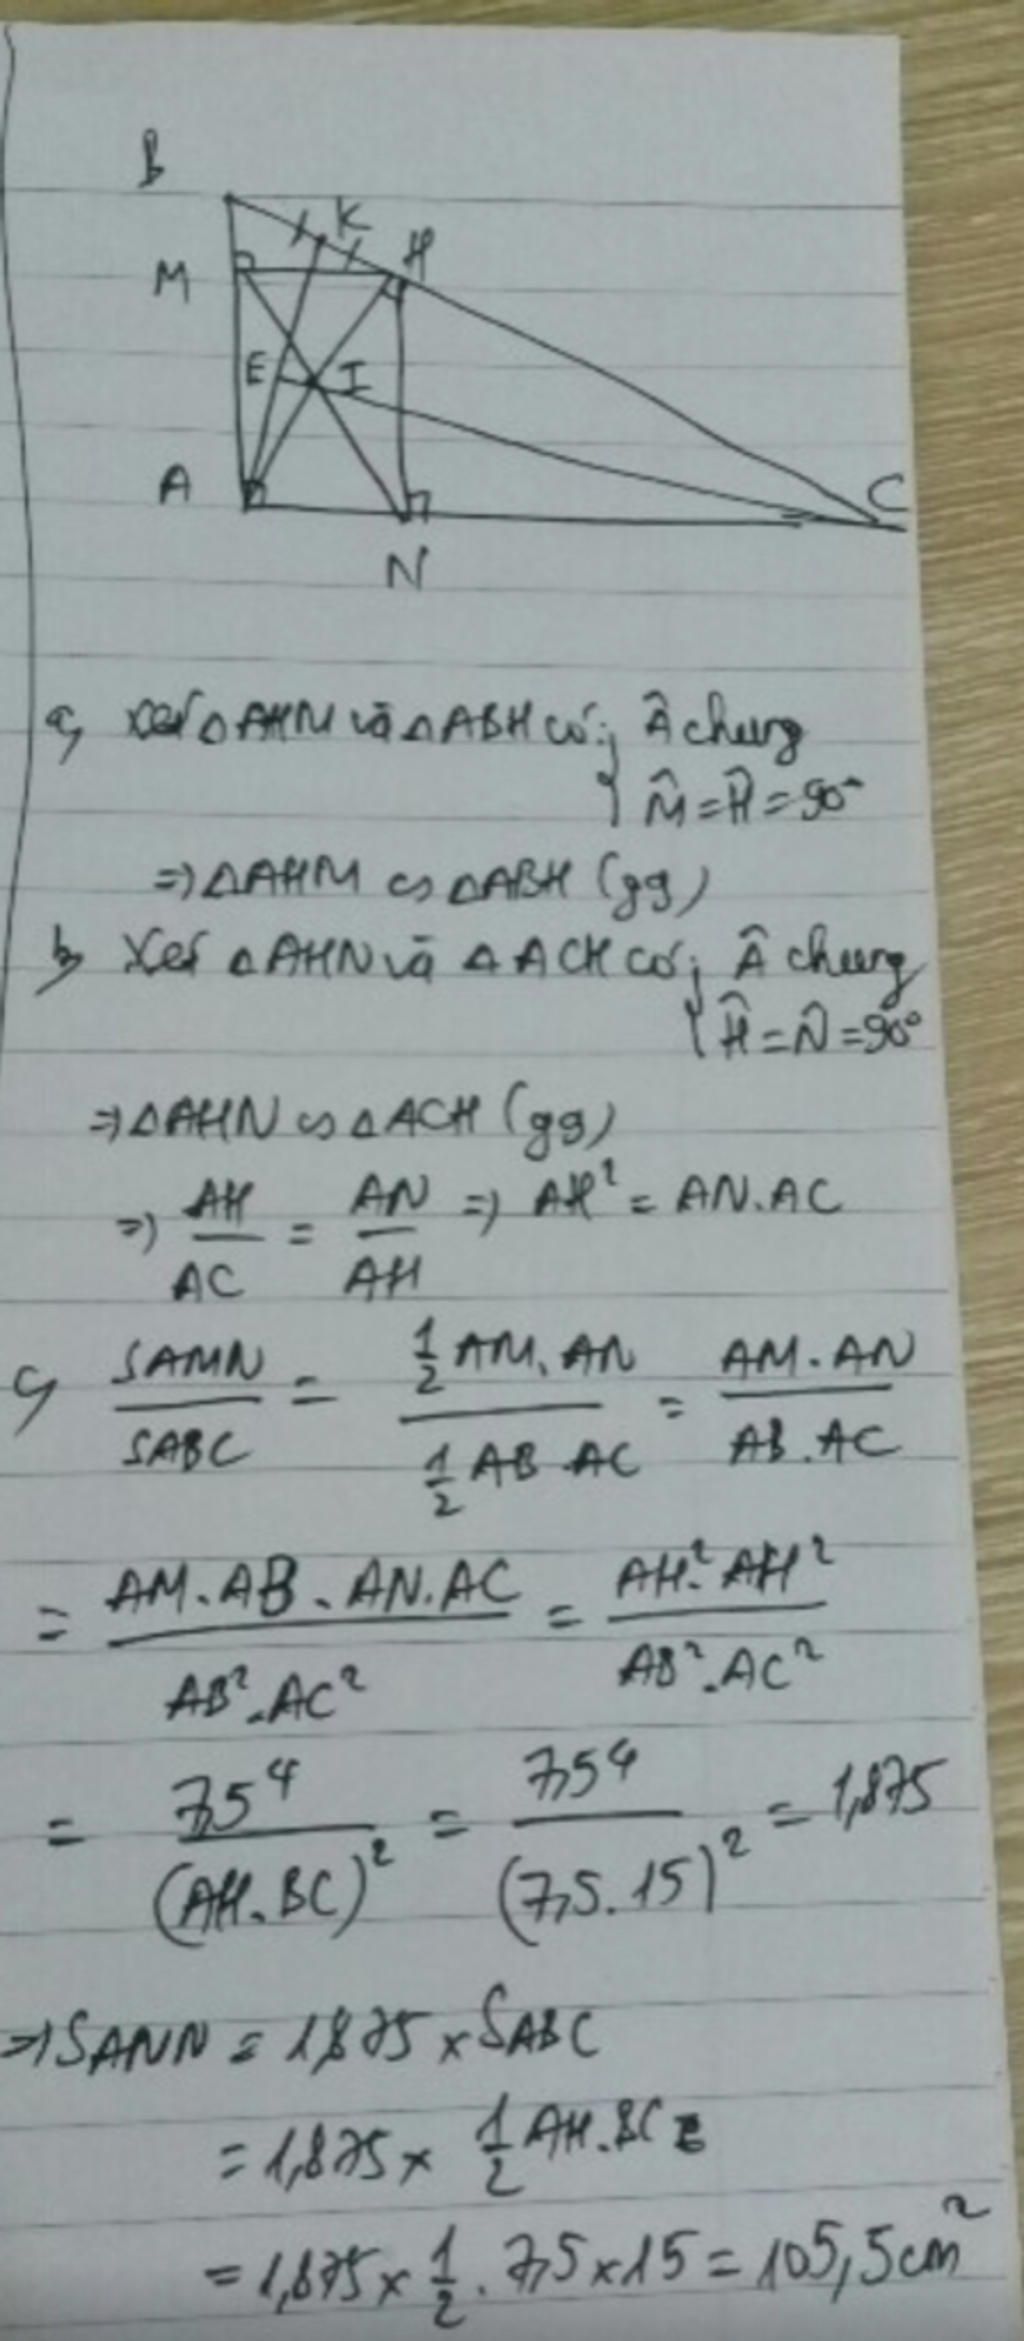 B
K
H
M
E
I
A
C
N
a, Xét △AHM và △ABH có: Â chung
M̂ = Ĥ = 90°
⇒ △AHM ∽ △ABH (gg)
b, Xét △AHN và △ACH có: Â chung
Ĥ = N̂ = 90°
⇒ △AHN ∽ △ACH (gg)
⇒ AH/AC = AN/AH ⇒ AH² = AN.AC
c, SAMN/SABC = (1/2 AM.AN)/(1/2 AB.AC) = (AM.AN)/(AB.AC)
= (AM.AB.AN.AC)/(AB².AC²) = (AH².AH²)/(AB².AC²)
= 7,5⁴/(AH.BC)² = 7,5⁴/(7,5.15)² = 1,875
⇒ SANN = 1,875 × SABC
= 1,875 × 1/2 AH.BC
= 1,875 × 1/2 . 7,5 × 15 = 105,5cm²